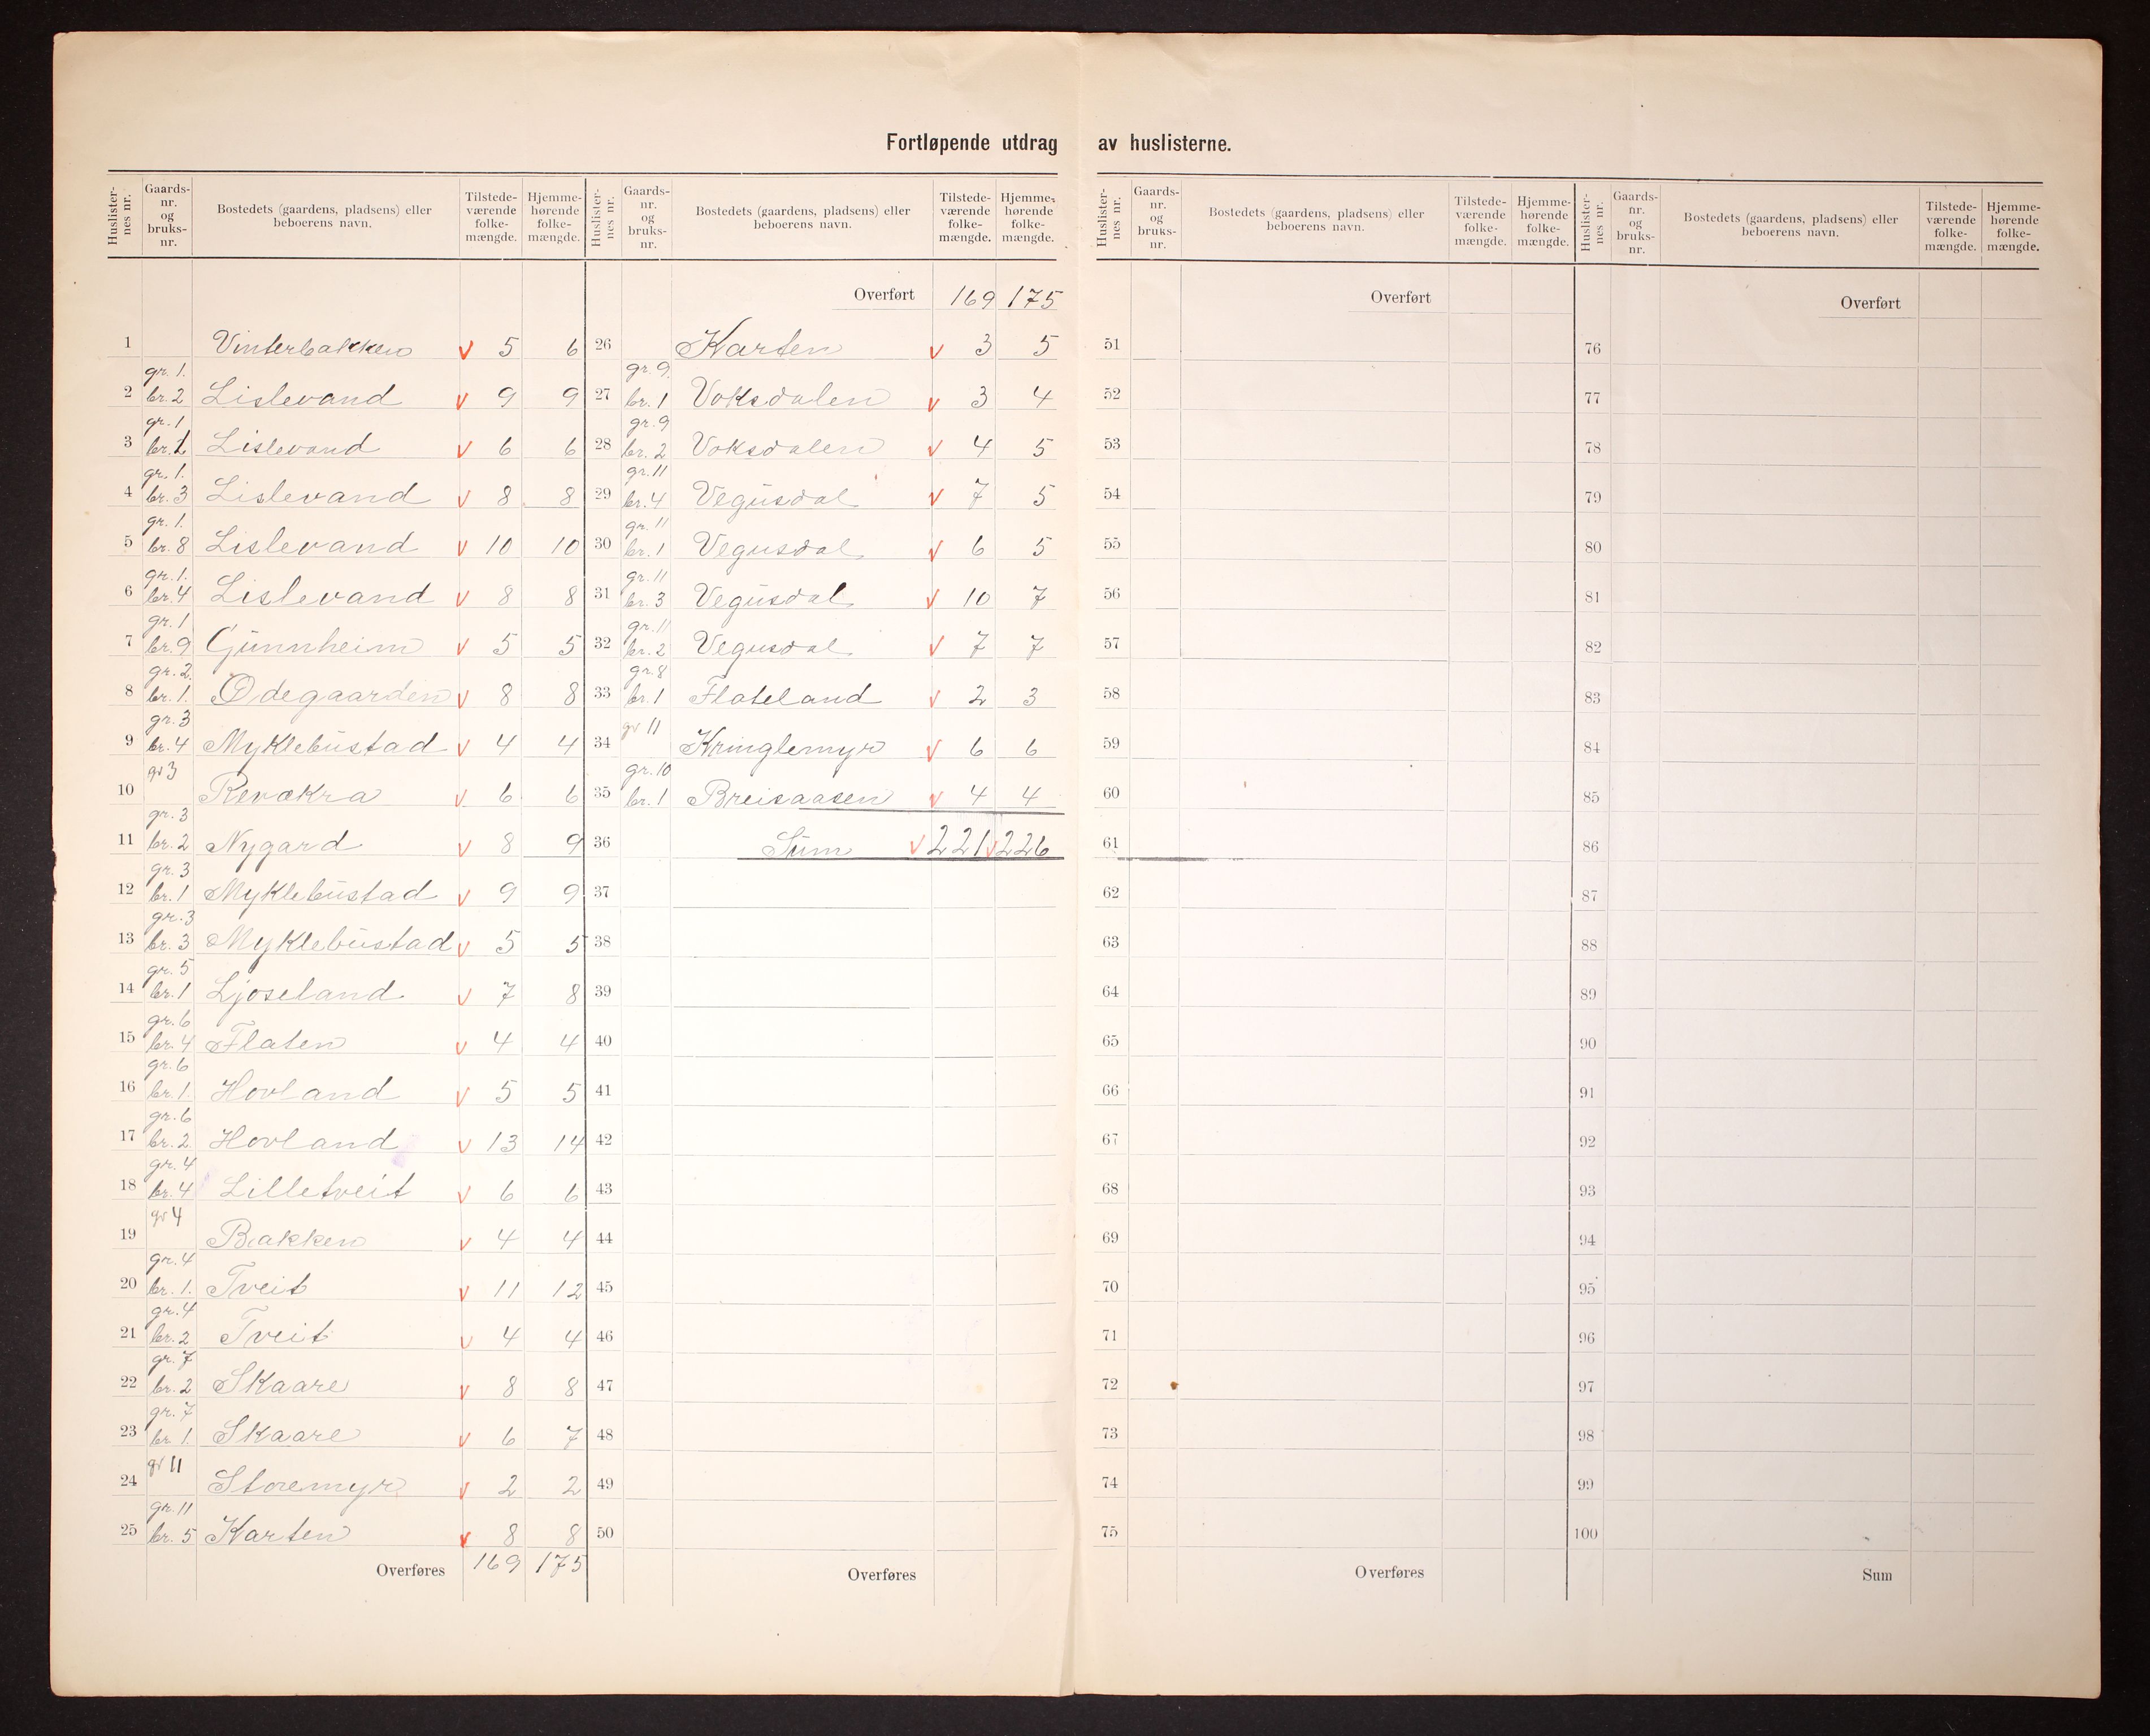 Fortløpende utdrag av huslisterne.
Huslister-nes nr. Gaards-nr. og bruks-nr. Bostedets (gaardens, pladsens) eller beboerens navn. Tilstede-værende folke-mængde. Hjemme-hørende folke-mængde.
1 Vinterbakken v 5 6
2 gr. 1. br. 2 Lislevand v 9 9
3 gr. 1 br. 1 Lislevand v 6 6
4 gr. 1. br. 3 Lislevand v 8 8
5 gr. 1. br. 8 Lislevand v 10 10
6 gr. 1. br. 4 Lislevand v 8 8
7 gr. 1 br. 9 Gunnheim v 5 5
8 gr. 2. br. 1. Ødegaarden v 8 8
9 gr. 3 br. 4 Myklebustad v 4 4
10 gr 3 Revakra v 6 6
11 gr. 3 br. 2 Nygard v 8 9
12 gr. 3 br. 1 Myklebustad v 9 9
13 gr. 3 br. 3 Myklebustad v 5 5
14 gr. 5 br. 1 Ljoseland v 7 8
15 gr. 6 br. 4 Flaten v 4 4
16 gr. 6 br. 1. Hovland v 5 5
17 gr. 6 br. 2 Hovland v 13 14
18 gr. 4 br. 4 Lilletveit v 6 6
19 gr 4 Bakken v 4 4
20 gr. 4 br. 1. Tveit v 11 12
21 gr. 4 br. 2 Tveit v 4 4
22 gr. 7 br. 2 Skaare v 8 8
23 gr. 7 br. 1. Skaare v 6 7
24 gr 11 Storemyr v 2 2
25 gr. 11 br. 5 Karten v 8 8
Overføres 169 175
Huslister-nes nr. Gaards-nr. og bruks-nr. Bostedets (gaardens, pladsens) eller beboerens navn. Tilstede-værende folke-mængde. Hjemme-hørende folke-mængde.
Overført 169 175
26 Karten v 3 5
27 gr. 9. br. 1 Voksdalen v 3 4
28 gr. 9 br. 2 Voksdalen v 4 5
29 gr. 11 br. 4 Vegusdal v 7 5
30 gr. 11 br. 1 Vegusdal v 6 5
31 gr. 11 br. 3 Vegusdal v 10 7
32 gr. 11 br. 2 Vegusdal v 7 7
33 gr. 8 br. 1 Flateland v 2 3
34 gr 11 Kringlemyr v 6 6
35 gr. 10 br. 1 Breisaasen v 4 4
36 Sum v 221 v 226
37
38
39
40
41
42
43
44
45
46
47
48
49
50
Overføres
Huslister-nes nr. Gaards-nr. og bruks-nr. Bostedets (gaardens, pladsens) eller beboerens navn. Tilstede-værende folke-mængde. Hjemme-hørende folke-mængde.
Overført
51
52
53
54
55
56
57
58
59
60
61
62
63
64
65
66
67
68
69
70
71
72
73
74
75
Overføres
Huslister-nes nr. Gaards-nr. og bruks-nr. Bostedets (gaardens, pladsens) eller beboerens navn. Tilstede-værende folke-mængde. Hjemme-hørende folke-mængde.
Overført
76
77
78
79
80
81
82
83
84
85
86
87
88
89
90
91
92
93
94
95
96
97
98
99
100
Sum